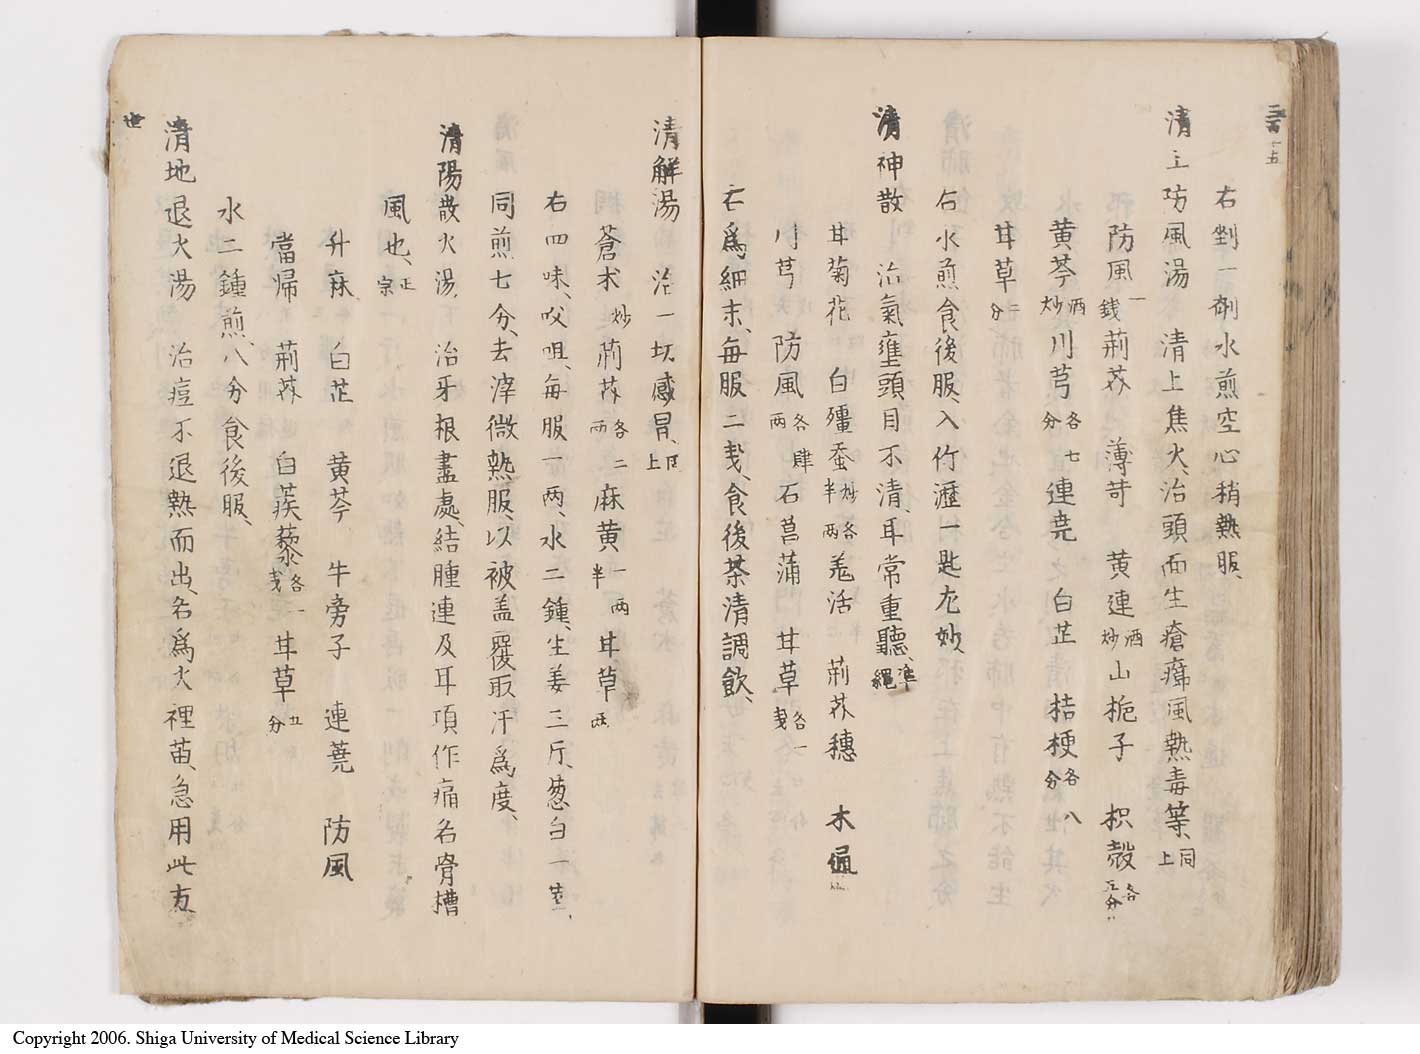 右剉一剤水煎空心稍熱服、
清上防風湯 清上焦火、治頭面生瘡癤風熱毒等、同上
防風一錢 荊芥 薄苛 黄連酒炒 山梔子 枳殻各五分
黄芩酒炒 川芎各七分 連尭 白芷 桔梗各八分
甘草二分
右水煎食後服、入竹瀝一匙尤妙
清神散 治氣壅頭目不清、耳常重聽、準繩
甘菊花 白殭蚕炒各半両 羗活 荊芥穗 木通
川芎 防風各肆両 石菖蒲 甘草各一戔
右爲細末、毎服二戔、食後茶清調飲、
清解湯 治一切感冒、同上
蒼朮炒 荊芥各二両 麻黄一両半 甘草一両
右四味、㕮咀、毎服一両、水二鍾、生姜三斤、葱白一莖、
同煎七分、去滓微熱服、以被盖覆取汗爲度、
清陽散火湯、治牙根盡處、結腫連及耳項作痛名骨槽
風也、正宗
升麻 白芷 黄芩 牛旁子 連蕘 防風
當帰 荊芥 白蒺藜各一戔 甘草五分
水二鍾煎、八分食後服、
清地退火湯 治痘不退熱而出、名爲火裡苗、急用此方、
世
Copyright 2006. Shiga University of Medical Science Library